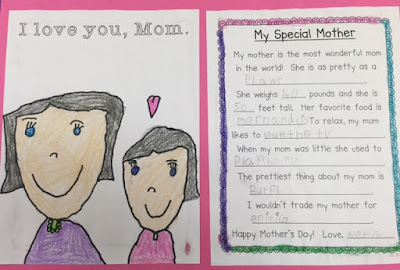 I love you, Mom.
My Special Mother
My mother is the most wonderful mom
in the world! She is as pretty as a
Flawr
She weighs 40 pounds and she is
50 feet tall. Her favorite food is
To relax, my mom
likes to tv
When my mom was little she used to
The prettiest thing about my mom is
I wouldn't trade my mother for
Happy Mother's Day! Love,